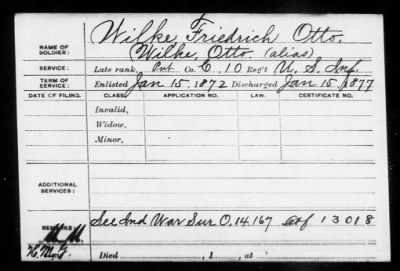 Wilke, Friedrich Otto.
NAME OF SOLDIER: (Wilke, Otto. (alias)
SERVICE: Late rank, Pvt Co. E, 10 Reg't U. S. Inf.
TERM OF SERVICE: Enlisted Jan 15, 1872 Discharged Jan 15, 1877
DATE OF FILING. CLASS. APPLICATION NO. LAW. CERTIFICATE NO.
Invalid,
Widow,
Minor,
ADDITIONAL SERVICES:
REMARKS: See Ind War Sur O. 14.167 ctf 13018
Died , 1 , at